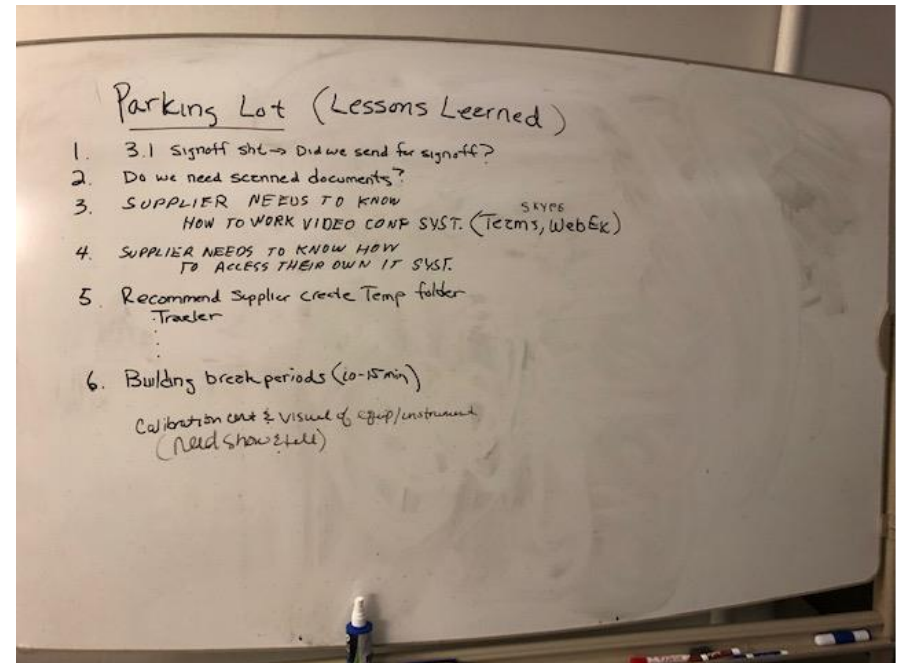 Parking Lot (Lessons Learned)
1. 3.1 Signoff sht → Did we send for signoff?
2. Do we need scanned documents?
3. SUPPLIER NEEDS TO KNOW
SKYPE
HOW TO WORK VIDEO CONF SYST. (Teams, WebEx)
4. SUPPLIER NEEDS TO KNOW HOW
TO ACCESS THEIR OWN IT SYST.
5. Recommend Supplier create Temp folder
6. Building break periods (10-15 min)
Calibration cert & visual of equip/instrument
(need show & tell)